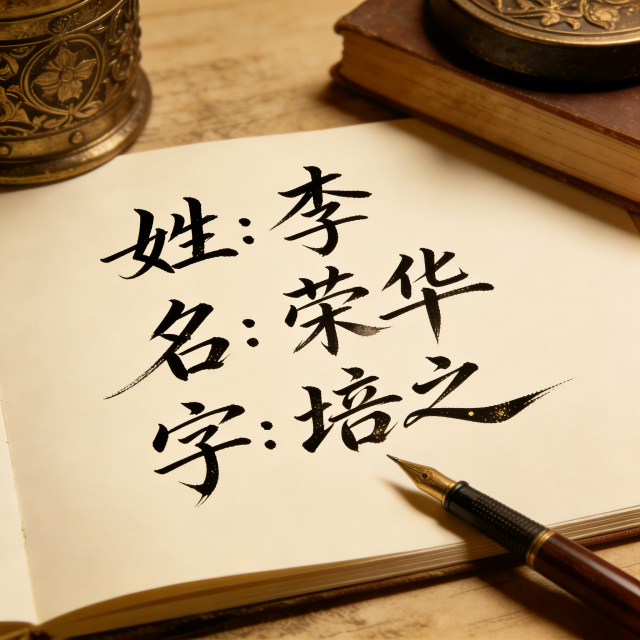 姓:李
名:荣华
字:培之